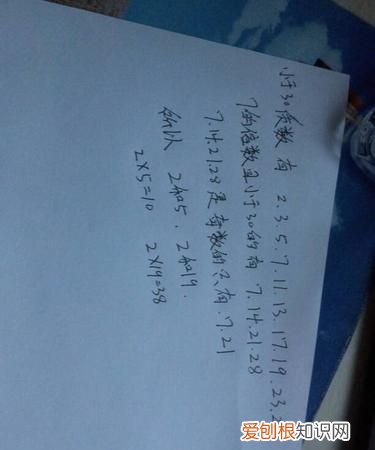 小于30质数有 2.3.5.7.11.13.17.19.23.2
7的倍数且小于30的有 7.14.21.28
7.14.21.28是奇数的只有.7.21
所以 2和5.2和19.
2×5=10 2×19=38
爱刨根知识网
www.baogen.com